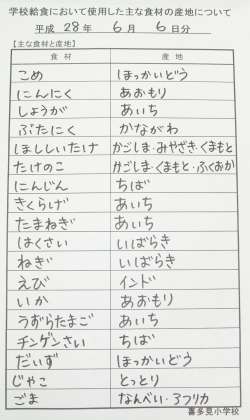 学校給食において使用した主な食材の産地について
平成 28年 6月 6日分
【主な食材と産地】
食材 産地
こめ ほっかいどう
にんにく あおもり
しょうが あいち
ぶたにく かながわ
ほししいたけ かごしま・みやざき・くまもと
たけのこ かごしま・くまもと・ふくおか
にんじん ちば
きくらげ あいち
たまねぎ あいち
はくさい いばらき
ねぎ いばらき
えび インド
いか あおもり
うずらたまご あいち
チンゲンさい ちば
だいず ほっかいどう
じゃこ とっとり
ごま なんべい・アフリカ
喜多見小学校